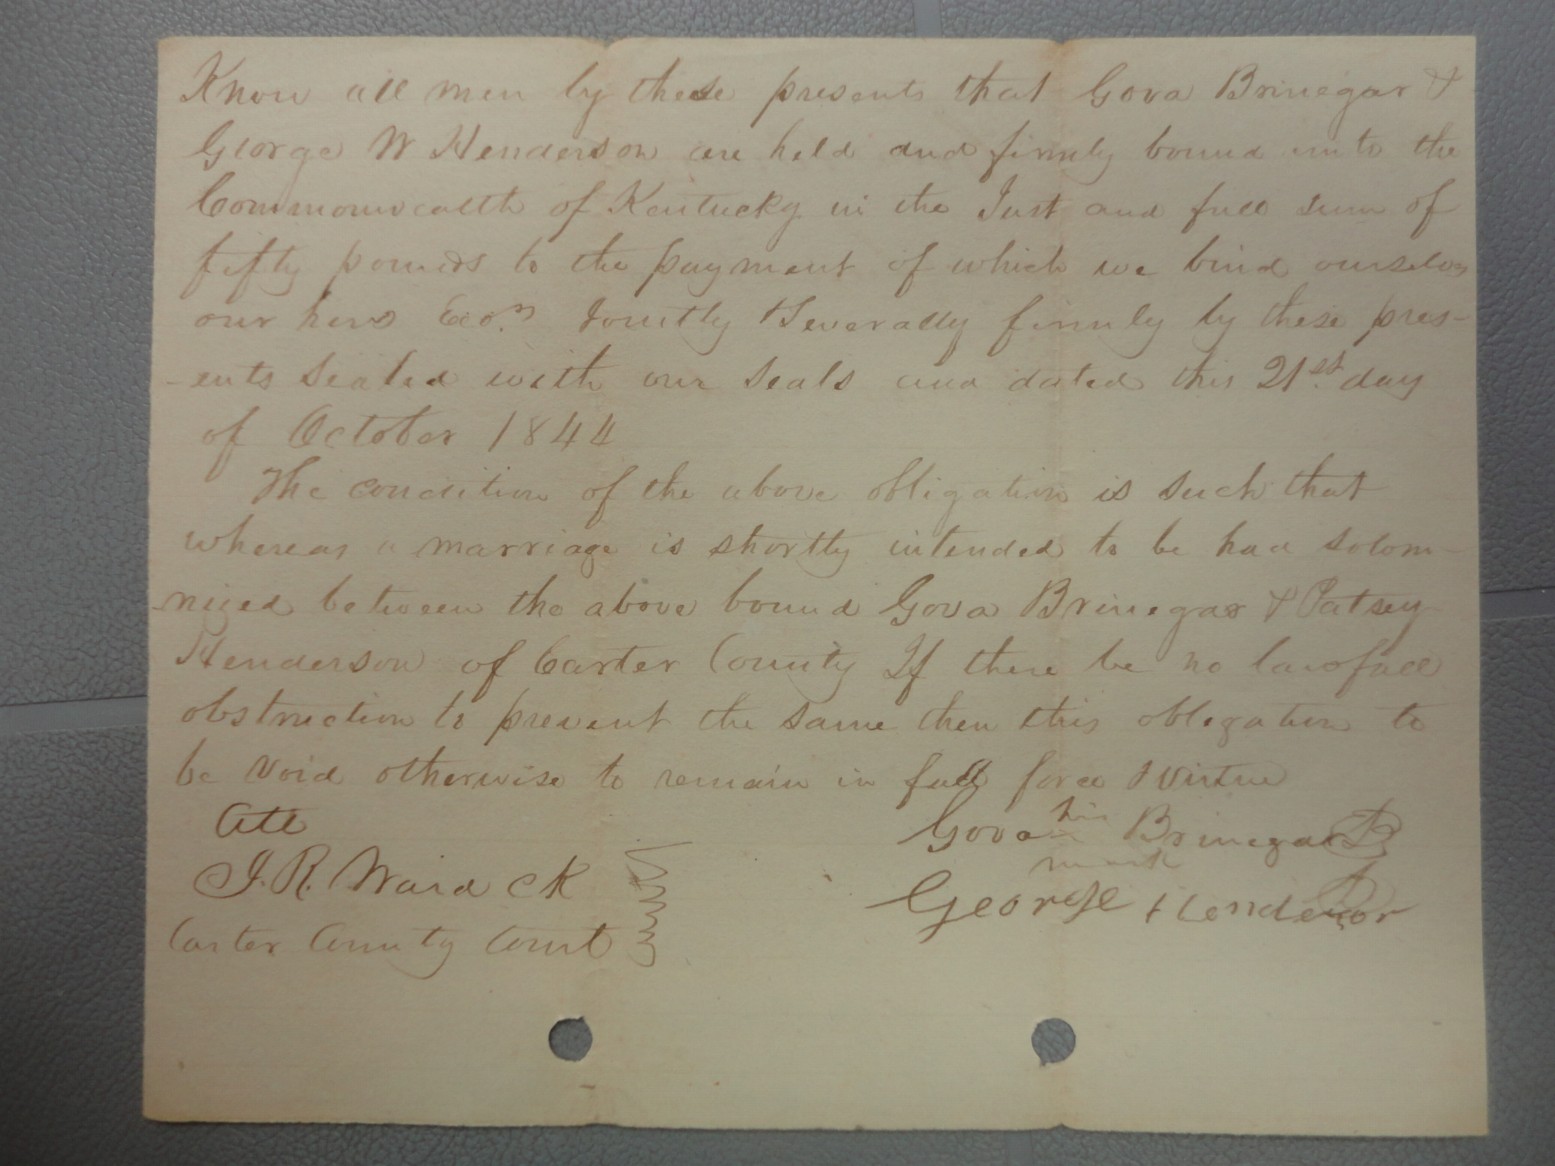 Know all men by these presents that Gova Brinegar &
George W Henderson are held and firmly bound unto the
Commonwealth of Kentucky in the Just and full sum of
fifty pounds to the payment of which we bind ourselves
our heirs Exors Jointly & Severally firmly by these pres-
-ents Sealed with our Seals and dated this 21st day
of October 1844
The condition of the above obligation is such that
whereas a marriage is shortly intended to be had solem-
-nized between the above bound Gova Brinegar & Patsey
Henderson of Carter County If there be no lawfull
obstruction to prevent the same then this obligation to
be void otherwise to remain in full force & Virtue
Att
Gova his Brinegar
mark
J. R. Ward CK
George Henderson
Carter County Court